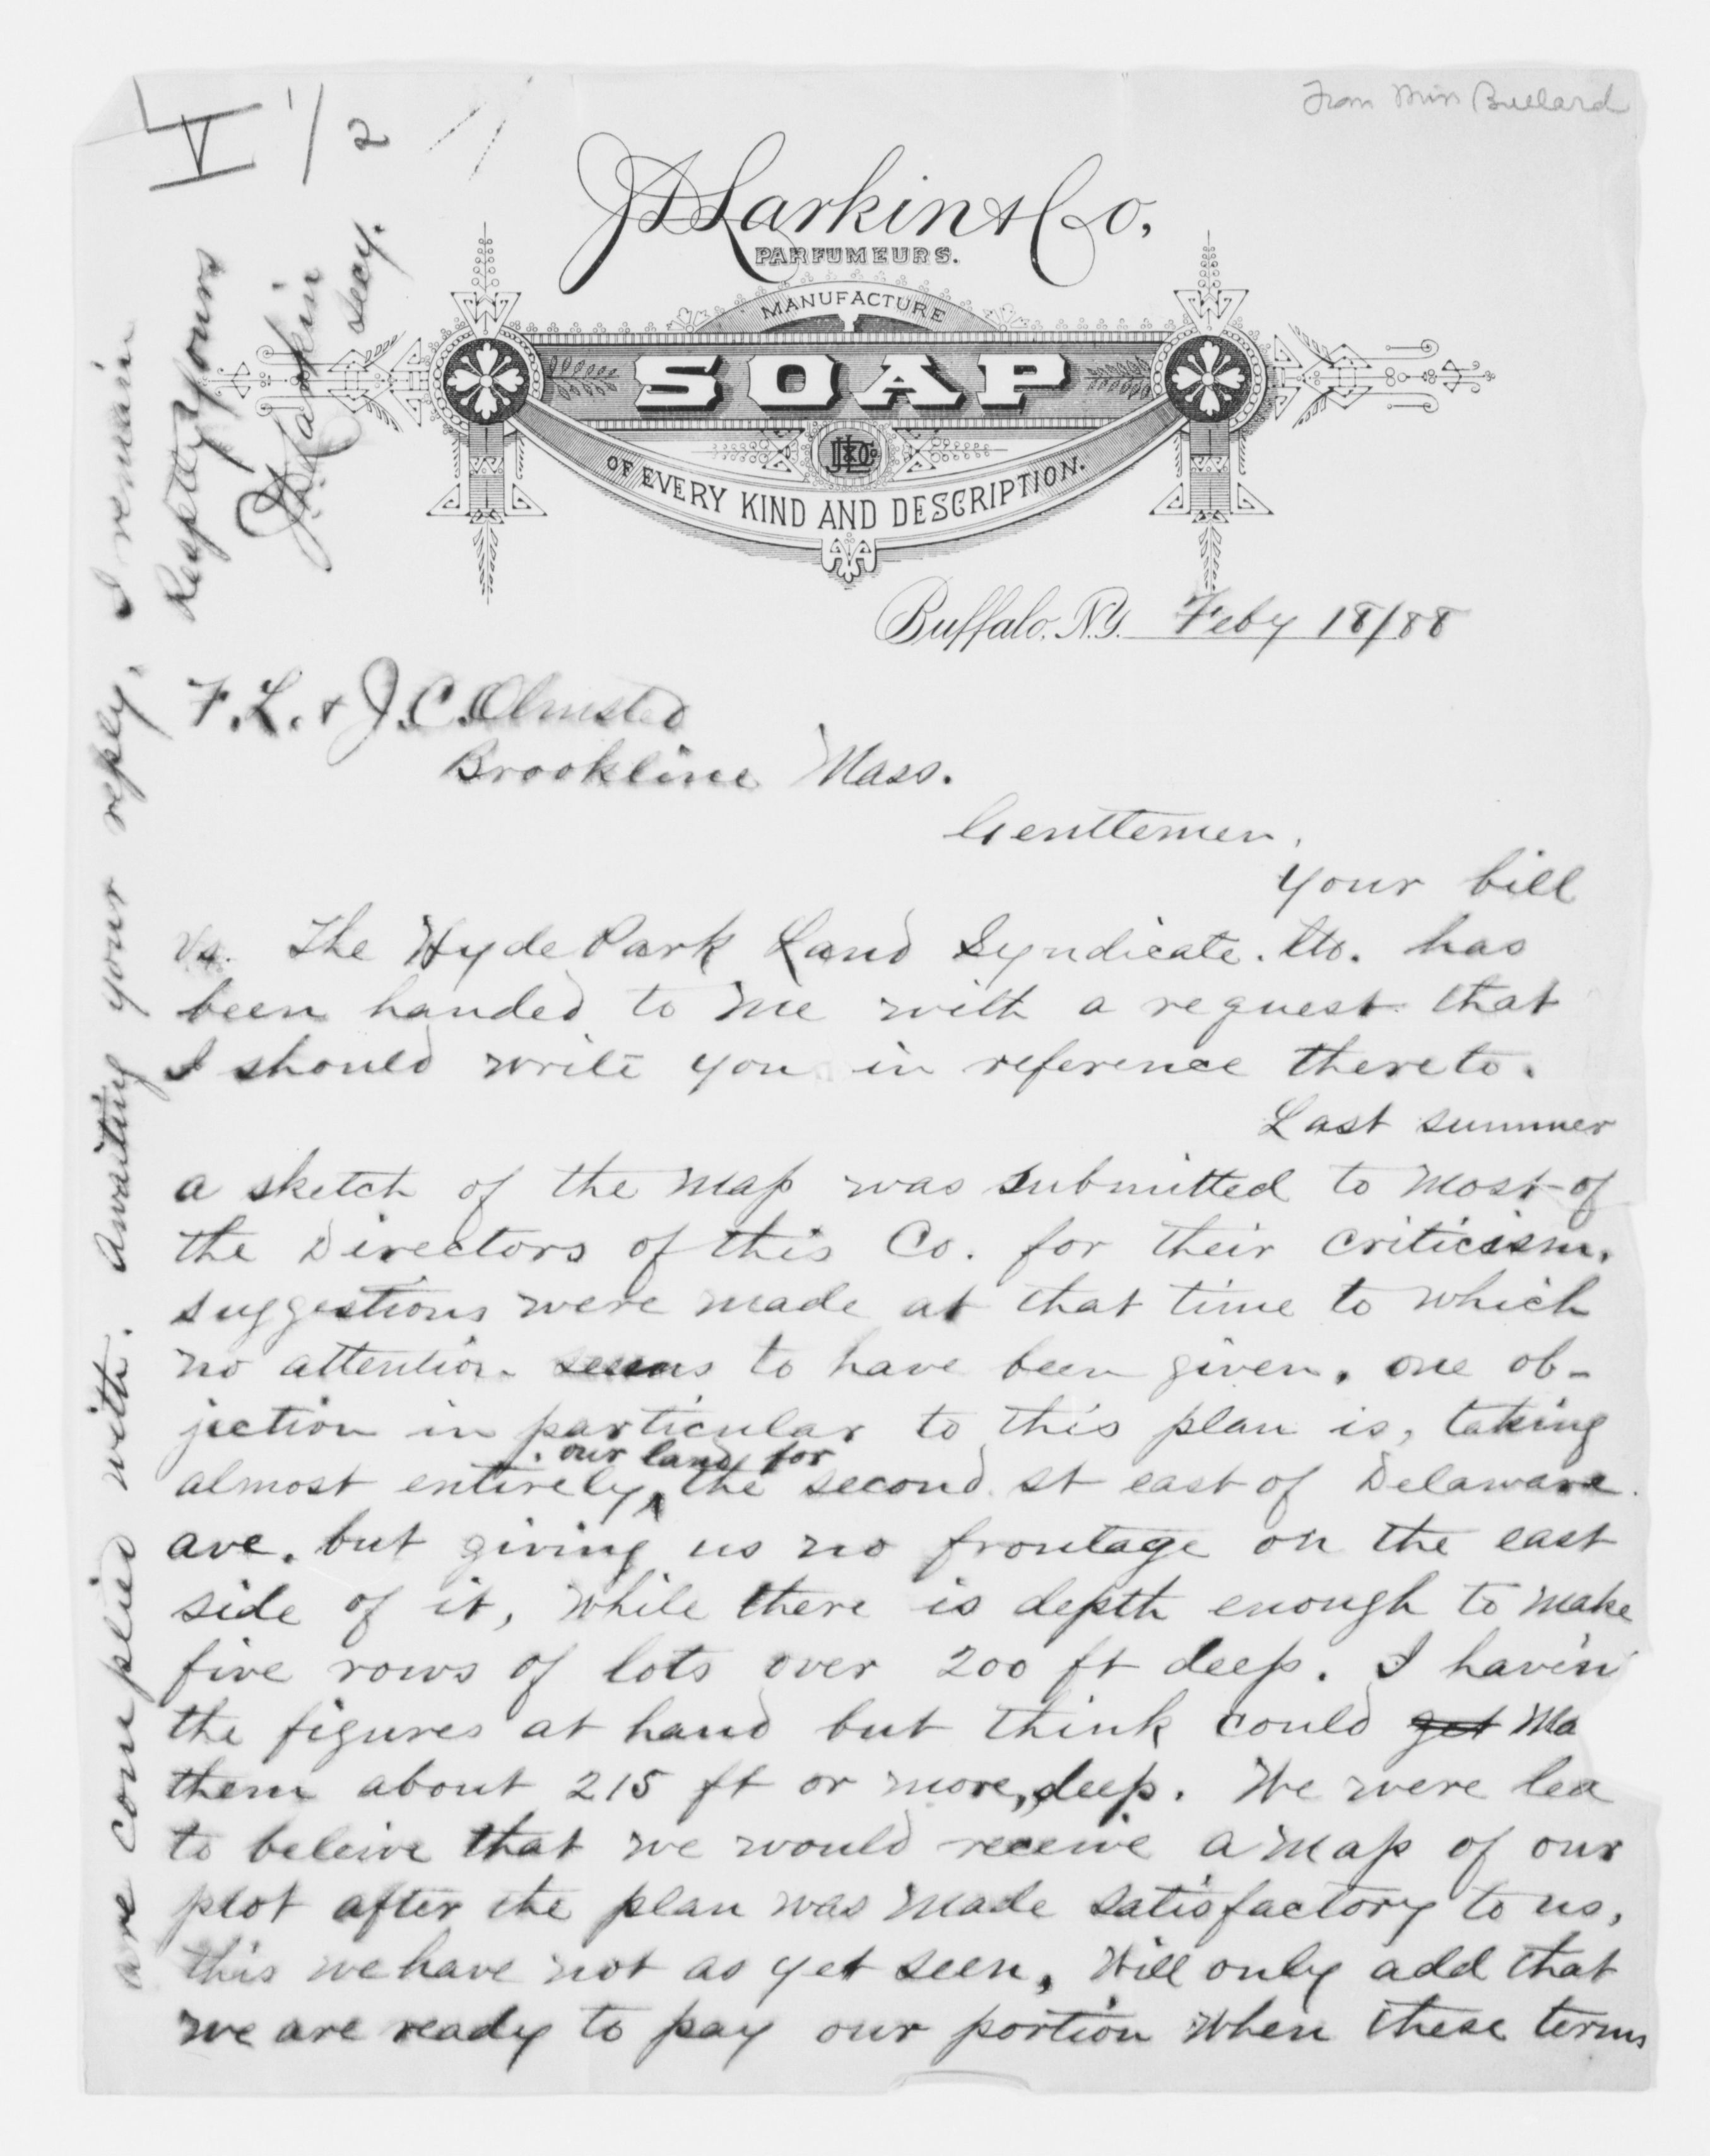 From Miss Bullard
V 1/2
J. D. Larkin & Co,
PARFUMEURS.
MANUFACTURE
SOAP
JDL&Co
OF EVERY KIND AND DESCRIPTION.
Buffalo, N.Y. Feby 18/88
F. L. & J. C. Olmsted
Brookline Mass.
Gentlemen,
Your bill
vs. The Hyde Park Land Syndicate. Ltd. has
been handed to me with a request that
I should write you in reference thereto.
Last summer
a sketch of the map was submitted to most of
the Directors of this Co. for their criticism.
suggestions were made at that time to which
no attention seems to have been given, one ob-
jection in particular to this plan is, taking
our land for
almost entirely ^ the second st east of Delaware
ave. but giving us no frontage on the east
side of it, while there is depth enough to make
five rows of lots over 200 ft deep. I haven
the figures at hand but think could get Ma
them about 215 ft or more, deep. We were lea
to beleive that we would receive a map of our
plot after the plan was made satisfactory to us,
this we have not as yet seen, Will only add that
we are ready to pay our portion when these terms
are complied with. Awaiting your reply, I remain
Respetty Yours
J. D. Larkin
secy.